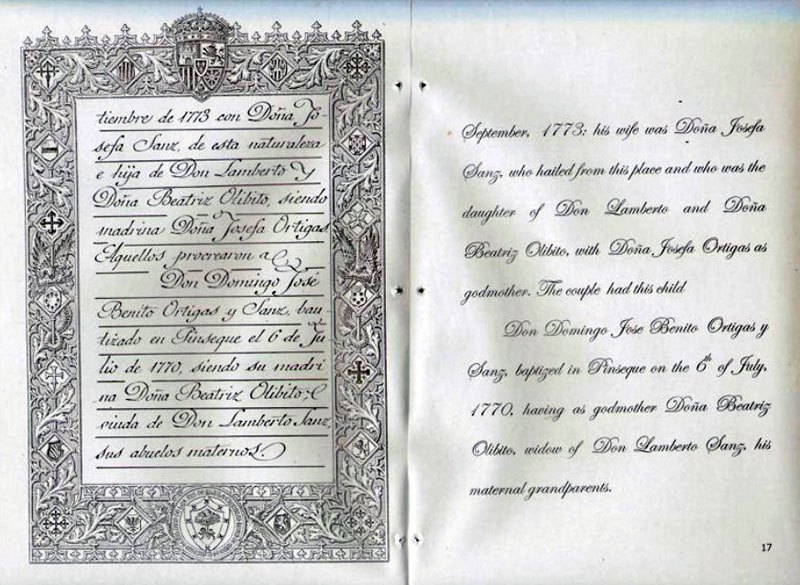 tiembre de 1773 con Doña Jo-
sefa Sanz, de esta naturaleza
e hija de Don Lamberto y
Doña Beatriz Olibito, siendo
madrina Doña Josefa Ortigas
Aquellos procrearon a
Don Domingo José
Benito Ortigas y Sanz, bau-
tizado en Pinseque el 6 de Ju-
lio de 1770, siendo su madri
na Doña Beatriz Olibito,
viuda de Don Lamberto Sanz,
sus abuelos maternos.
September, 1773; his wife was Doña Josefa
Sanz, who hailed from this place and who was the
daughter of Don Lamberto and Doña
Beatriz Olibito, with Doña Josefa Ortigas as
godmother. The couple had this child
Don Domingo Jose Benito Ortigas y
Sanz, baptized in Pinseque on the 6th of July,
1770, having as godmother Doña Beatriz
Olibito, widow of Don Lamberto Sanz, his
maternal grandparents.
17